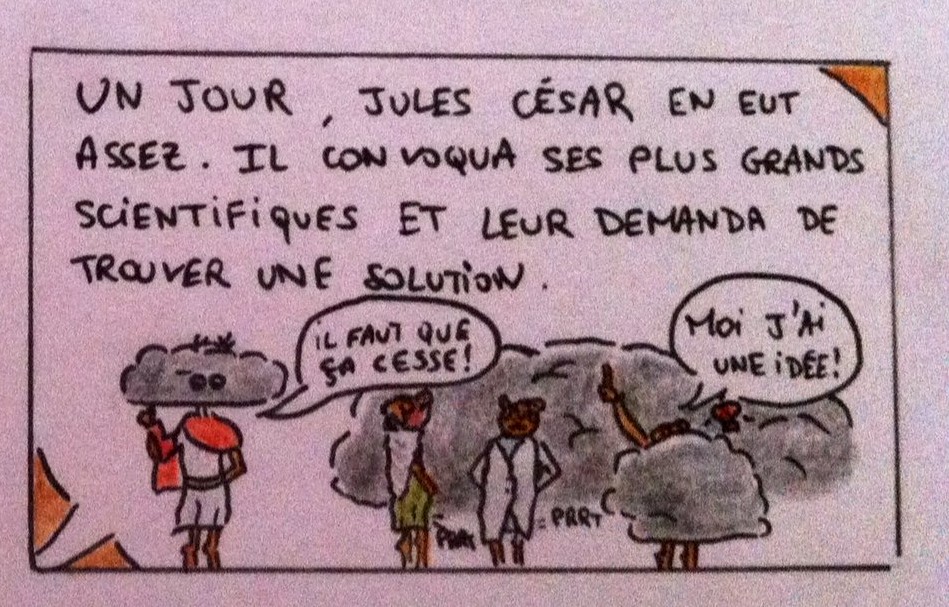 UN JOUR, JULES CÉSAR EN EUT
ASSEZ. IL CONVOQUA SES PLUS GRANDS
SCIENTIFIQUES ET LEUR DEMANDA DE
TROUVER UNE SOLUTION.
IL FAUT QUE
ÇA CESSE!
MOI J'AI
UNE IDÉE!
PRRT